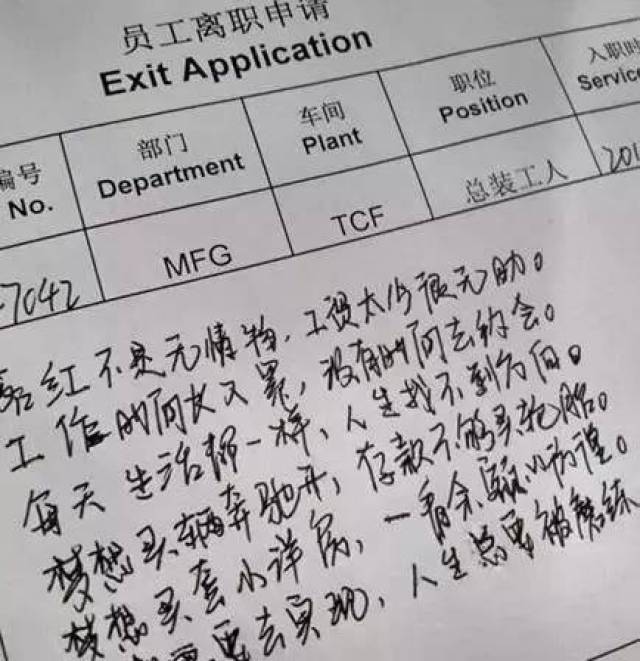 员工离职申请
Exit Application
编号 部门 车间 职位 入职时
No. Department Plant Position Service
-7042 MFG TCF 总装工人 201
落红不是无情物，工资太少很无助。
工作时间长又累，没有时间去约会。
每天生活都一样，人生找不到方向。
梦想买辆奔驰开，存款不够买轮胎。
梦想买套小洋房，一看余额心发慌。
要去实现，人生总要被磨练